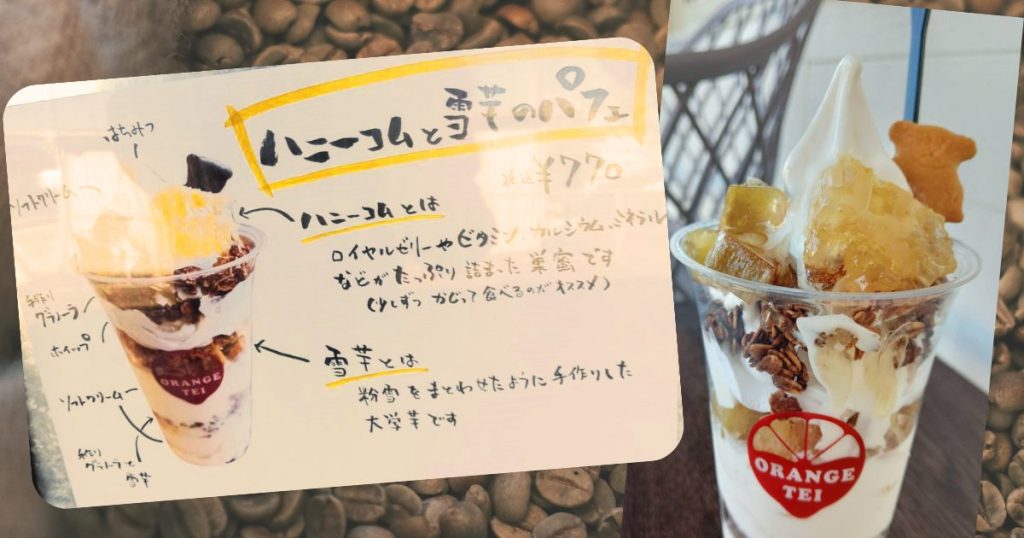 ハニーコムと雪芋のパフェ
税込¥770
はちみつ
ソフトクリーム
ハニーコムとは
ロイヤルゼリーやビタミン、カルシウム、ミネラル
などがたっぷり詰まった巣蜜です
(少しずつかじって食べるのがオススメ)
手作り
グラノーラ
ホイップ
ソフトクリーム
手作り
グラノーラと
雪芋
雪芋とは
粉雪をまとわせたように手作りした
大学芋です
ORANGE
TEI
ORANGE
TEI